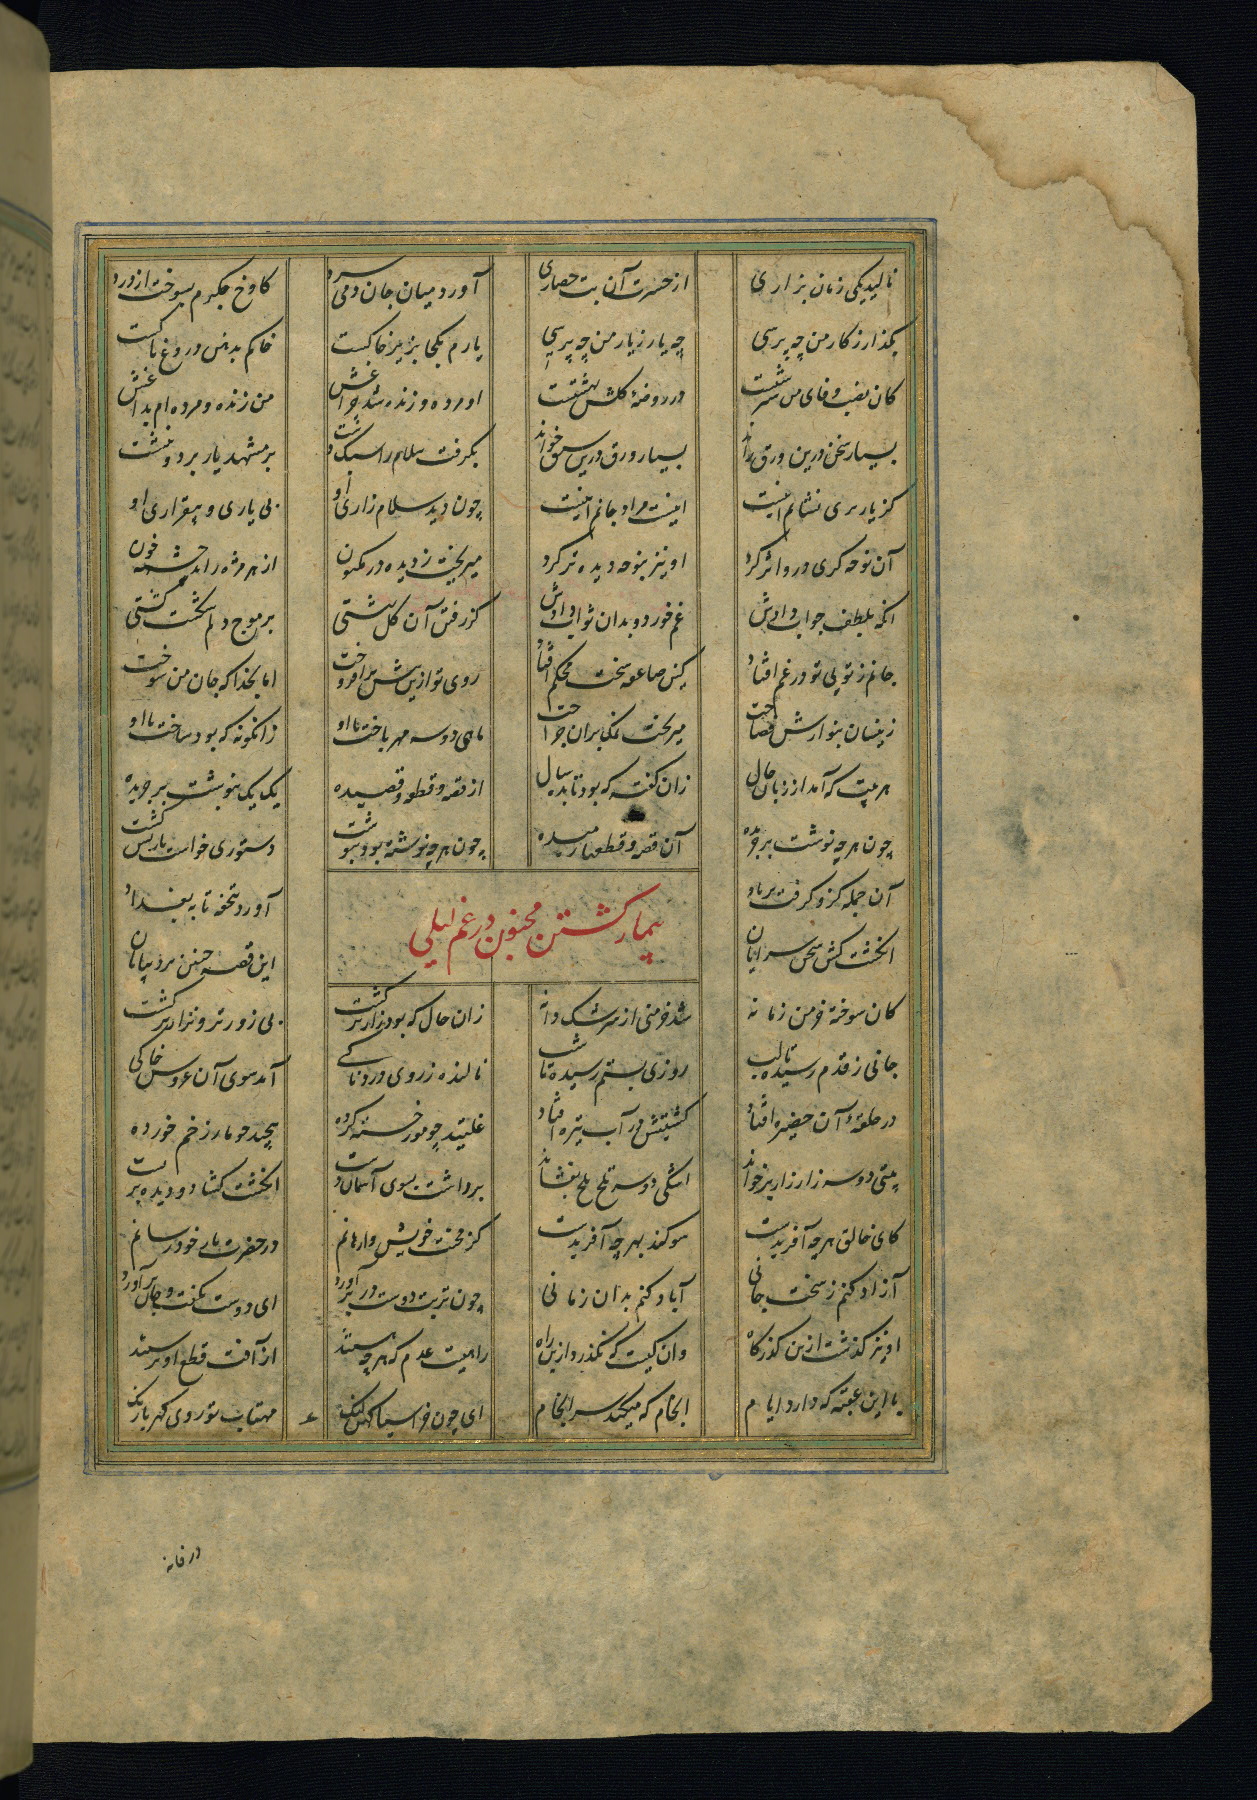 نالید یکی زمان بزاری از حسرت آن بت حصاری آورد میان جان دمی سرد کاوخ جگرم بسوخت از درد
بگذار ز کار من چه پرسی چه یار ز یار من چه پرسی یارم بکجا بزیر خاکست خاکم بدهن دروغ پاکست
کان وفای من سرشتست در روضه گلشن بهشتست او مرده و زنده شد چراغش من زنده و مرده ام بداغش
بسیار سخن درین ورق راند بسیار ورق درین سبق خواند بگرفت سلام را سبکدست بر مشهد یار برد و بنشست
کز یار بری نشانم اینست اینست مراد جانم اینست چون دید سلام زاری او بی یاری و بیقراری او
آن نوحه گری درو اثر کرد او نیز بنوحه دیده تر کرد میریخت ز دیده در مکنون از هر مژه راند چشمه خون
انگه بلطف جواب دادش غم خورد و بدان ثواب دادش کز رفتن آن گل بهشتی بر موج دلم شکست کشتی
جانم ز تو بی تو در غم افتاد کین صاعقه سخت محکم افتاد روی تو ازین برافروخت اما بخدا که جان من سوخت
زینسان بنوازش فصاحت میریخت نمک بران جراحت ماهی دو سه مهر باخت با او زانگونه که بود ساخت با او
هر بیت که آمد از زبان حال زان گفته که بود تا بده سال از قصه و قطعه و قصیده یک یک بنوشت بر جریده
چون هر چه نوشت بر جریده آن قصه و قطعها رمیده چون هر چه نوشته بود بنوشت دستوری خواست باز پس گشت
آن جمله کزو گرفت بر یاد آورد بتحفه تا به بغداد
بیمار گشتن مجنون در غم لیلی
انگشت کش سخن سرایان این قصه چنین برد بپایان
کان سوخته خرمن زمانه شد خرمنی از سرشک دانه زان حال که بود زارتر گشت بی زورتر و نزارتر گشت
جانی ز قدم رسیده تا لب روزی بستم رسیده تا شب نالنده ز روی دردناکی آمد سوی آن عروس خاکی
در حلقه آن حضیره افتاد کشتیش در آب تیره افتاد غلتید چو مور خسته کرده پیچید چو مار زخم خورده
بیتی دو سه زار زار برخواند اشکی دو سه تلخ تلخ بفشاند برداشت بسوی آسمان دست انگشت گشاد و دیده بربست
کای خالق هر چه آفریدست سوگند بهر چه آفریدست کز محنت خویش وارهانم در حضرت یار خود رسانم
آزاد کنم ز سخت جانی آباد کنم بدان زمانی چون تربت دوست در بر آورد ای دوست بگفت و جان برآورد
او نیز گذشت ازین گذرگاه وان کیست که نگذرد ازین راه راهیست عدم که هر چه هستند از آفت قطع او نرستند
با این که دارد ایام انجام که میکند سرانجام ای چون خر آسیا کهن لنگ مهتاب تو روی کهربا رنگ
در خانه